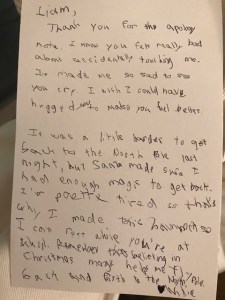 Liam,
Thank you for the apology
note. I know you felt really bad
about accidentally touching me.
It made me so sad to see
you cry. I wish I could have
hugged you to make you feel better.
It was a little harder to get
back to the North Pole last
night, but Santa made sure I
had enough magic to get back.
I'm pretty tired so that's
why I made this hammock so
I can rest while you're at
school. Remember that believing in
Christmas magic helps me fly
back and forth to the North Pole